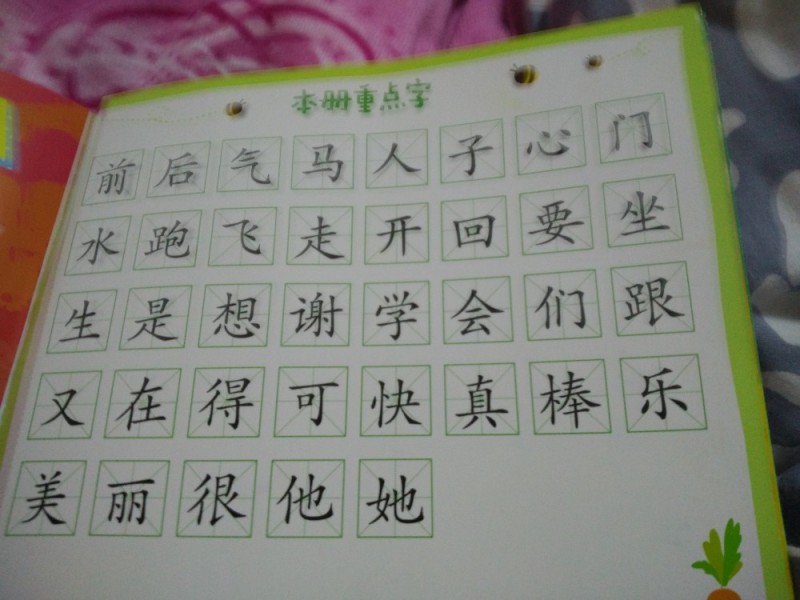 本册重点字
前后气马人子心门
水跑飞走开回要坐
生是想谢学会们跟
又在得可快真棒乐
美丽很他她